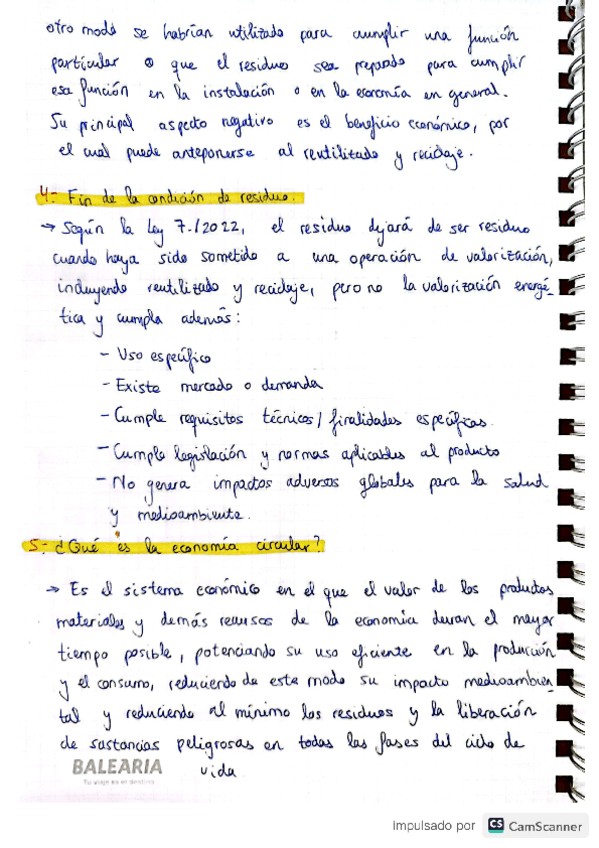 otro modo se habrían utilizado para cumplir una función
particular o que el residuo sea preparado para cumplir
esa función en la instalación o en la economía en general.
Su principal aspecto negativo es el beneficio económico, por
el cual puede anteponerse al reutilizado y reciclaje.
4- Fin de la condición de residuo.
→ Según la Ley 7/2022, el residuo dejará de ser residuo
cuando haya sido sometido a una operación de valorización,
incluyendo reutilizado y reciclaje, pero no la valorización energé_
tica y cumpla además:
- Uso específico
- Existe mercado o demanda
- Cumple requisitos técnicos/finalidades específicas.
- Cumple legislación y normas aplicables al producto
- No genera impactos adversos globales para la salud
y medioambiente.
5- ¿Qué es la economía circular?
→ Es el sistema económico en el que el valor de los productos
materiales y demás recursos de la economía duran el mayor
tiempo posible, potenciando su uso eficiente en la producción
y el consumo, reduciendo de este modo su impacto medioambien_
tal y reduciendo al mínimo los residuos y la liberación
de sustancias peligrosas en todas las fases del ciclo de
vida.
BALEARIA
Impulsado por CS CamScanner